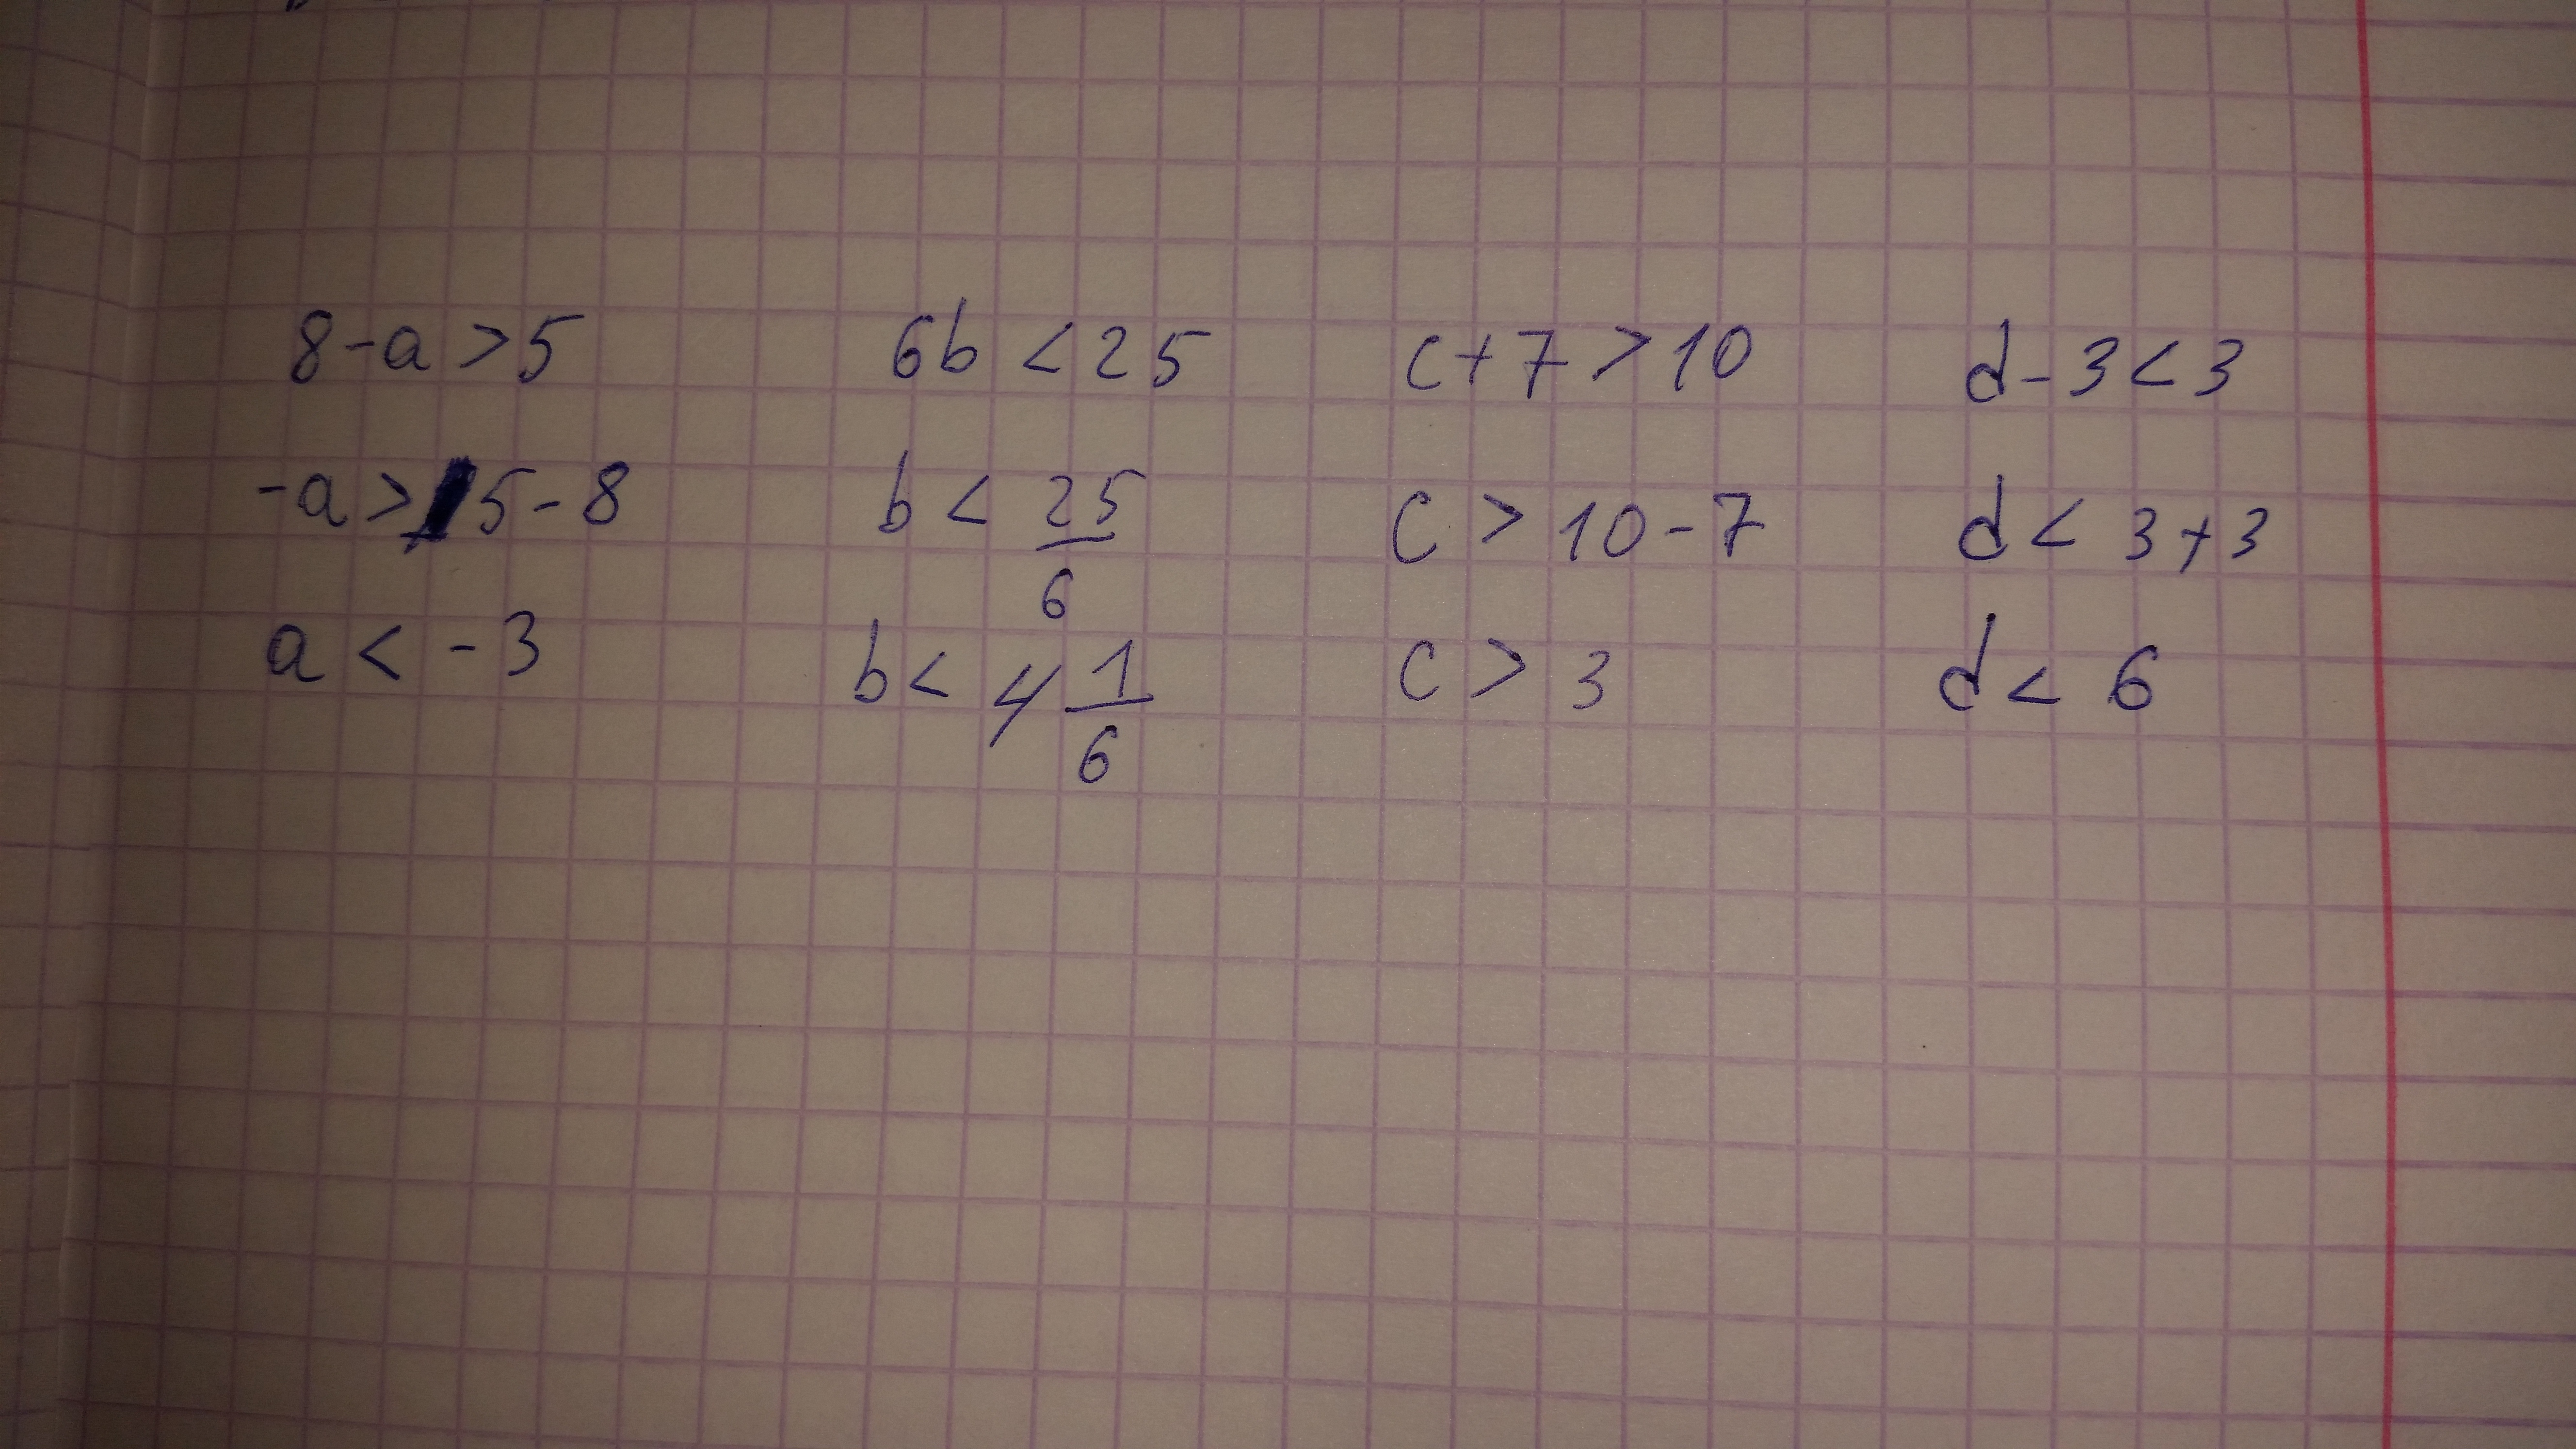 8-a>5 6b<25 c+7>10 d-3<3
-a>5-8 b<25/6 c>10-7 d<3+3
a<-3 b<4 1/6 c>3 d<6